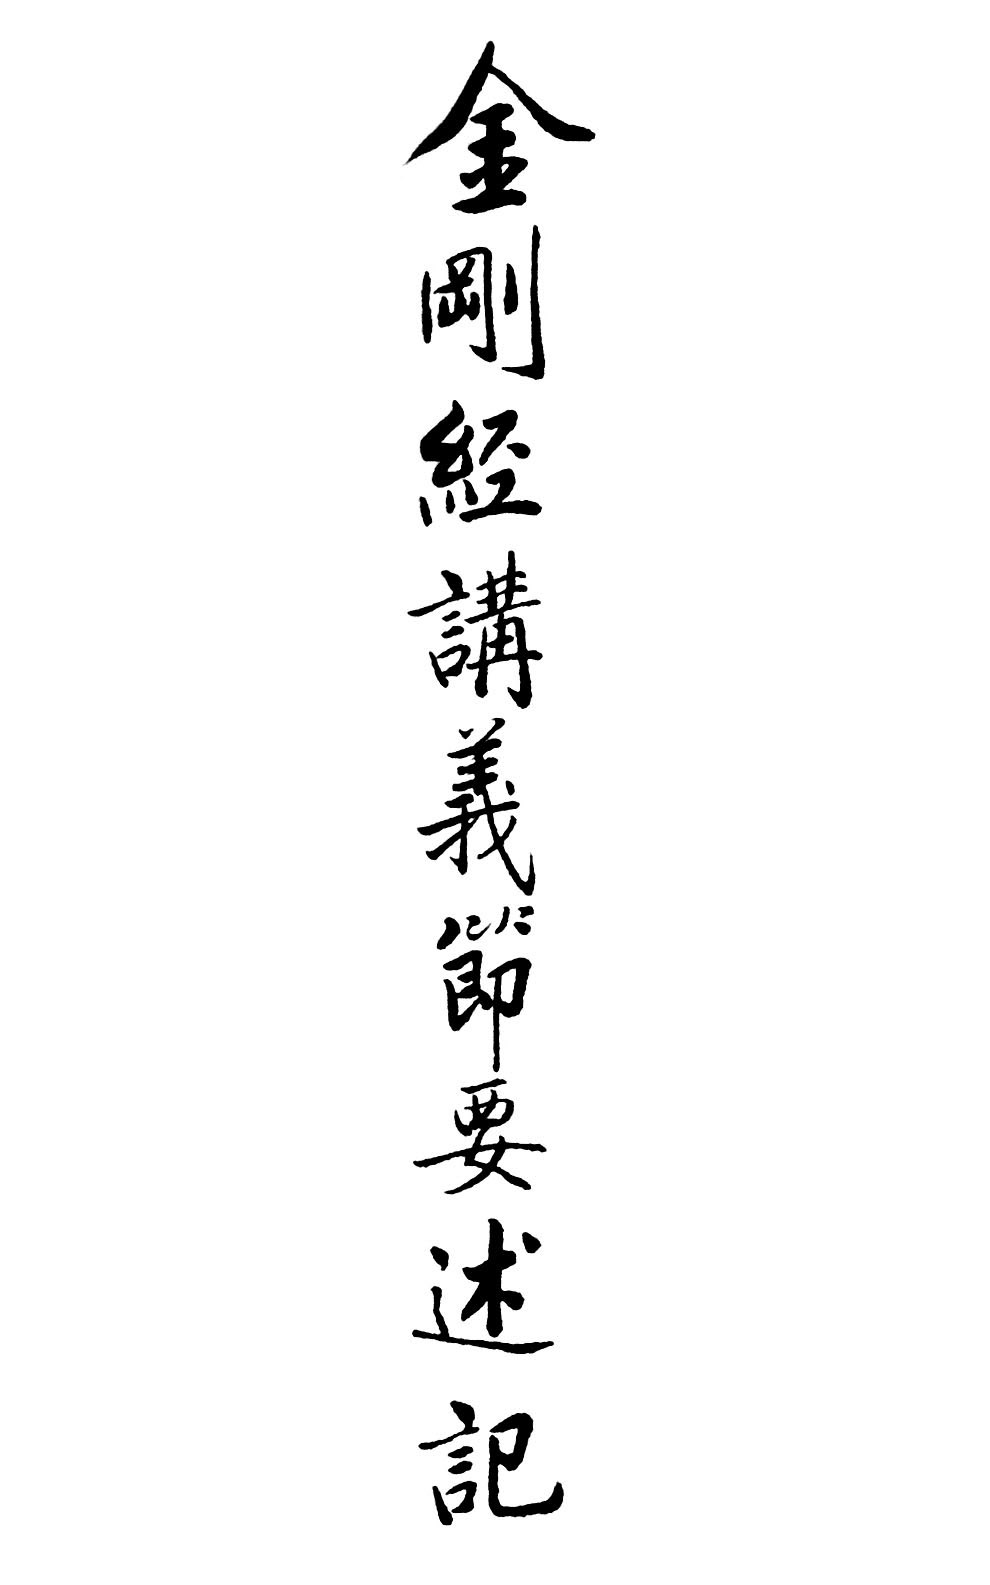 金剛經講義節要述記